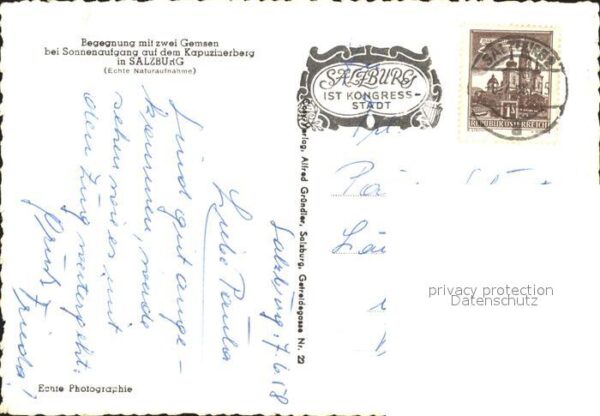 Begegnung mit zwei Gemsen
bei Sonnenaufgang auf dem Kapuzinerberg
in SALZBURG
(Echte Naturaufnahme)
SALZBURG
IST KONGRESS-
STADT
SALZBURG 2
REPUBLIK ÖSTERREICH
Verlag, Alfred Gründler, Salzburg, Getreidegasse Nr. 22
Salzburg, 7.6.58
Liebe Paula
Sind gut ange-
kommen, werde
sehn wie es mit
den Zug weitergeht.
Gruß Frieda!
privacy protection
Datenschutz
Echte Photographie